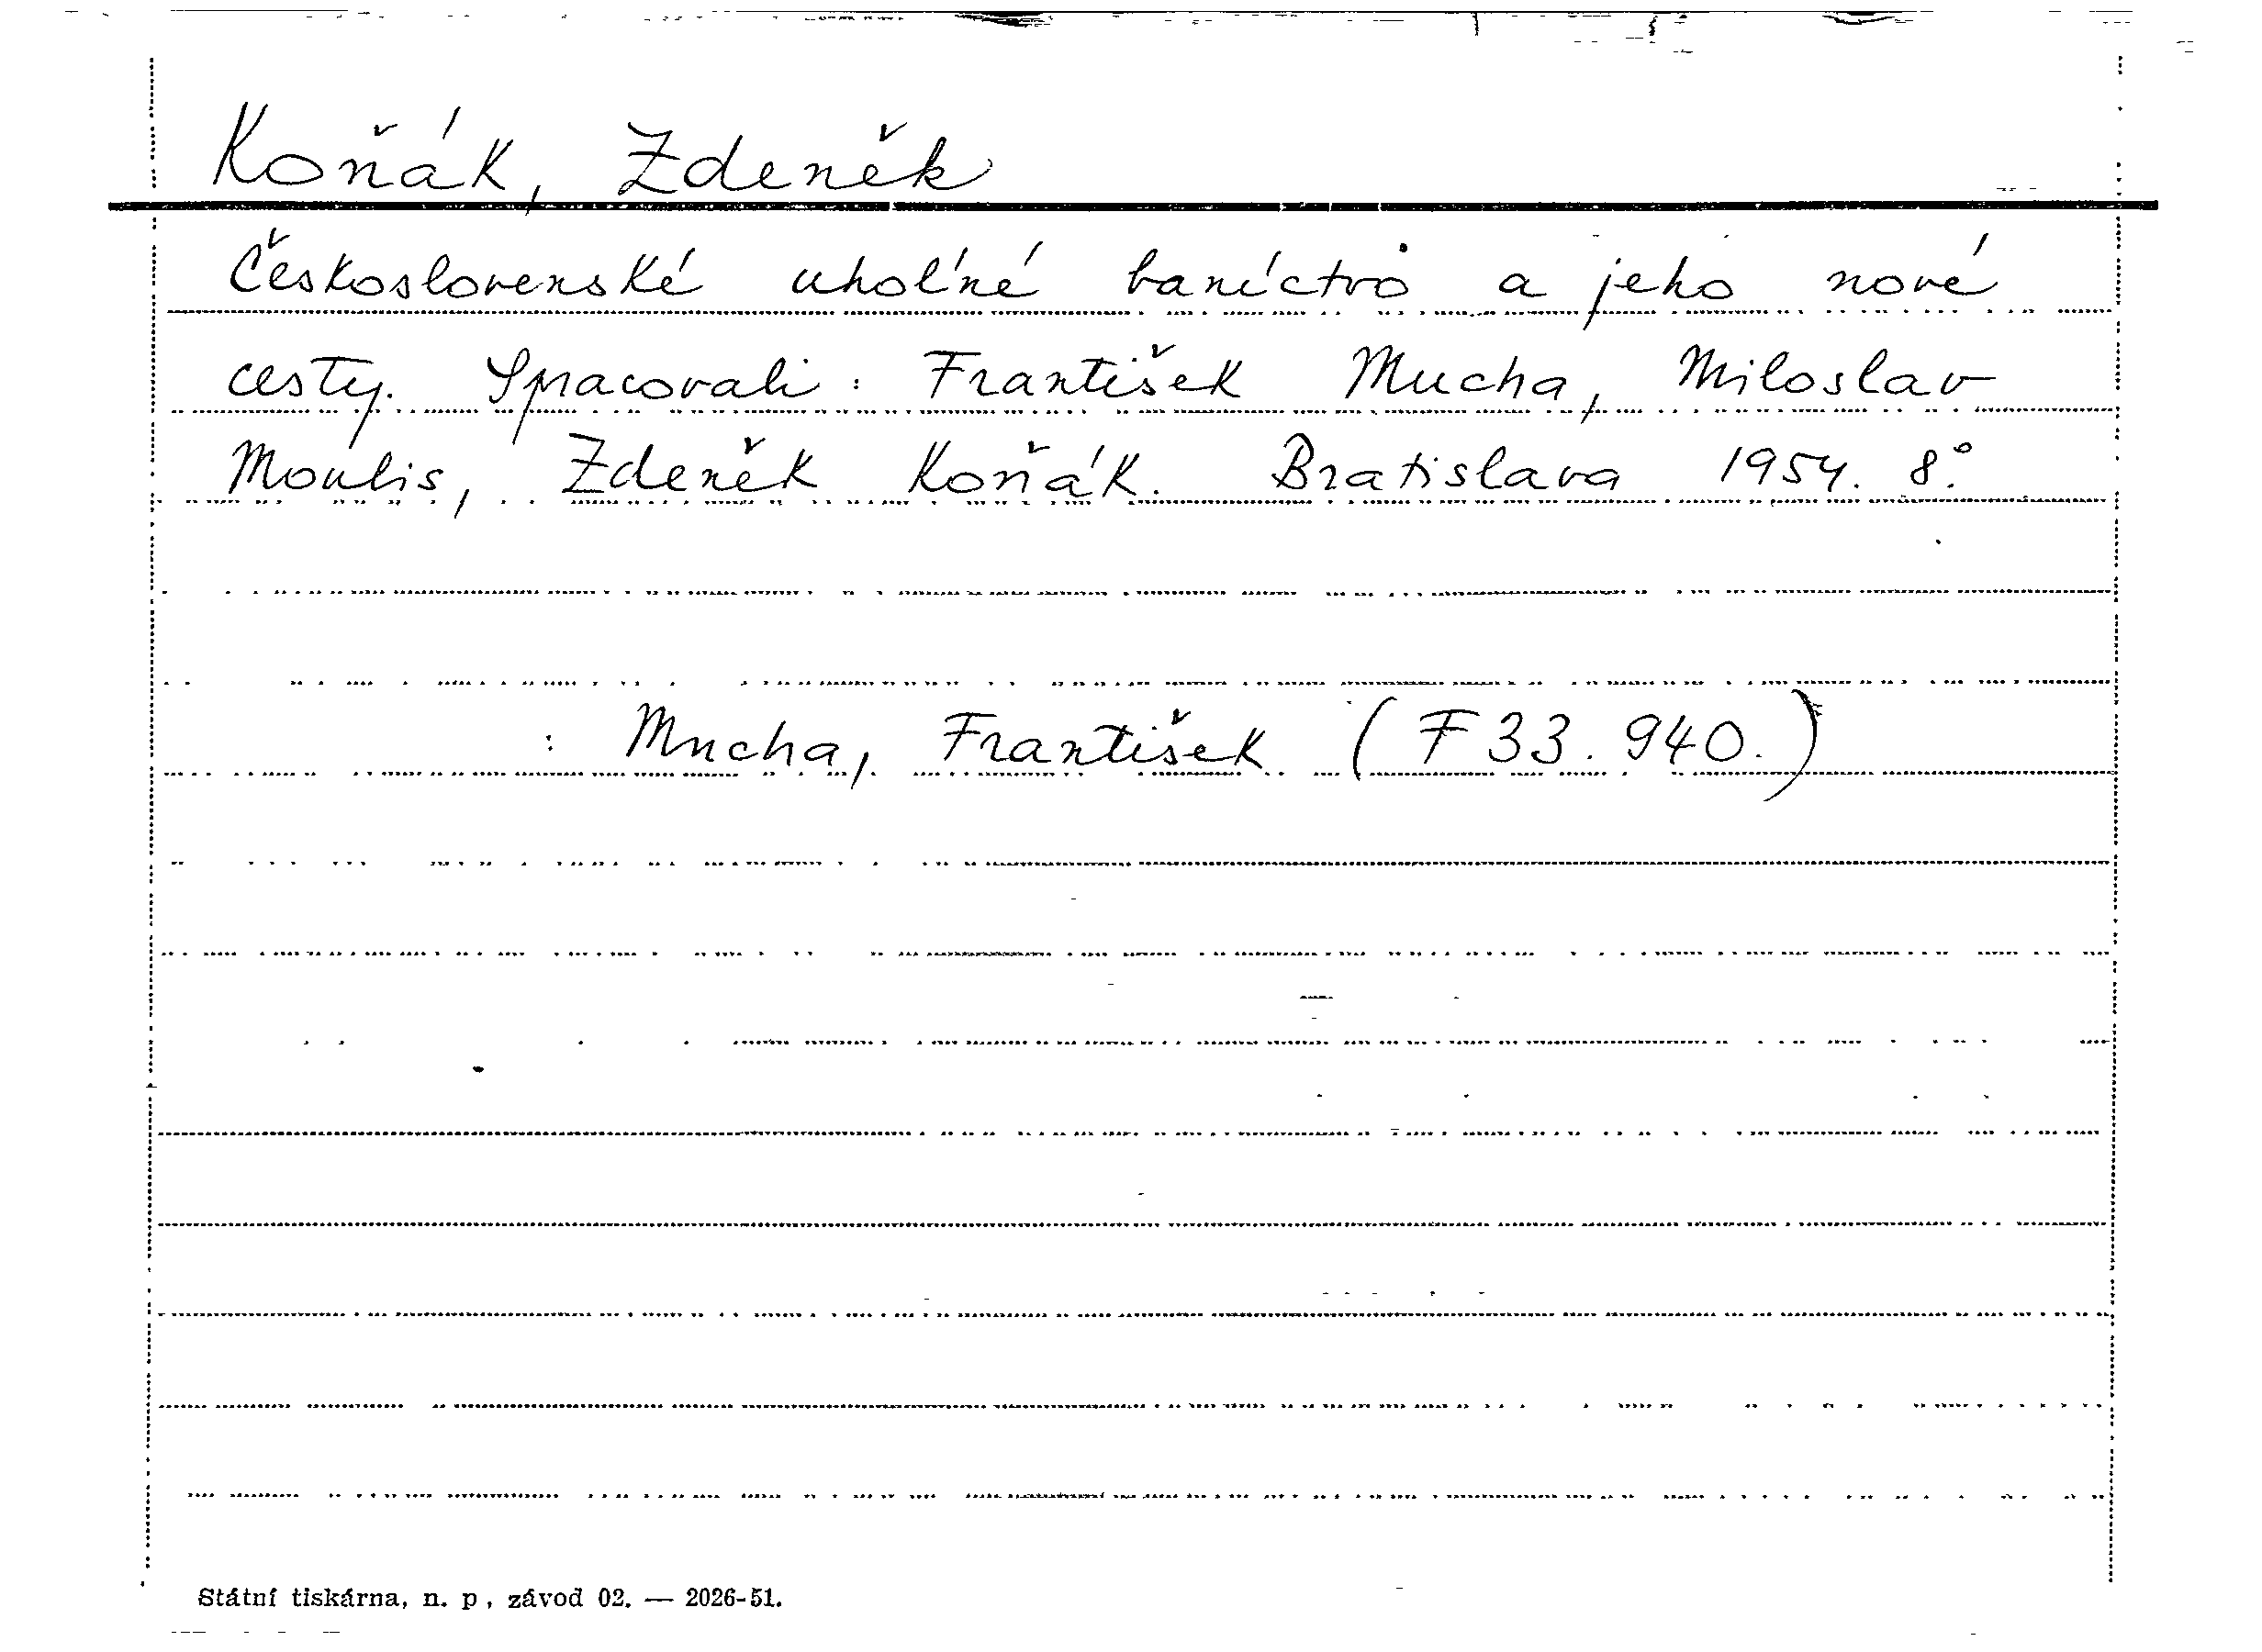 Koňák, Zdeněk
Československé uhoľné baníctvo a jeho nové
cesty. Spracovali: František Mucha, Miloslav
Moulis, Zdeněk Koňák. Bratislava 1954. 8°.
: Mucha, František (F 33.940.)
Státní tiskárna, n. p., závod 02. — 2026-51.